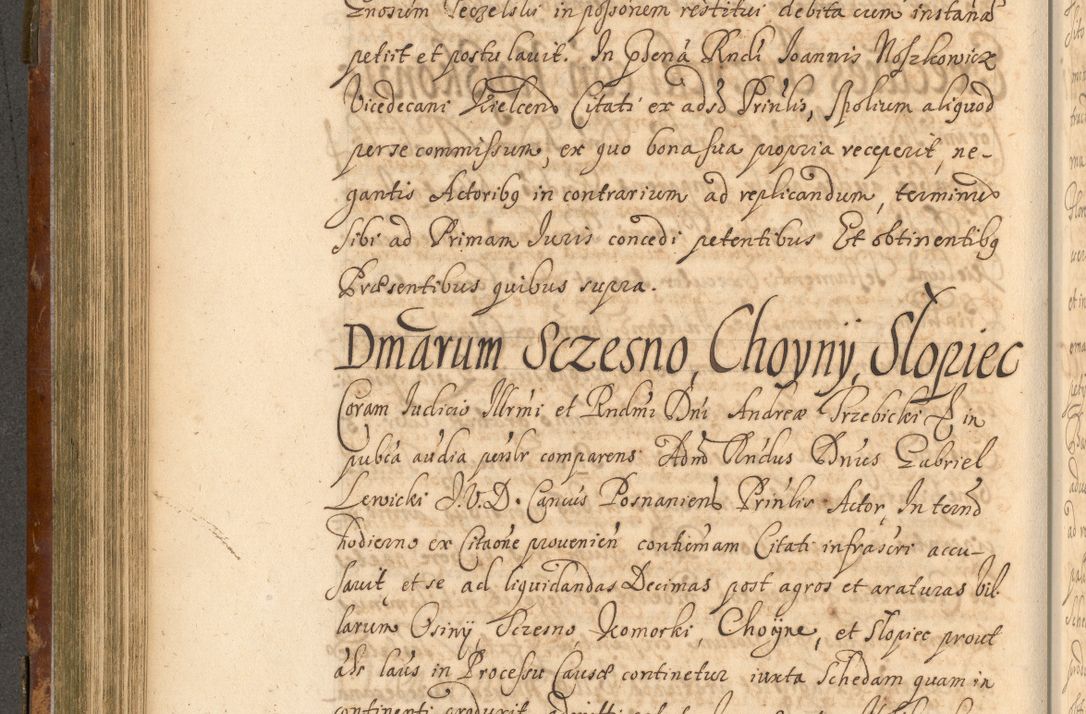 Gnosum Teczelski in possonem restitui debita cum instana
petiit et postulavit. In psena Rndi Ioannis Noszkowicz
Vicedecani Kielcen Citati ex adso Prinlis, spolium aliquod
per se commissum, ex quo bona sua propria receperit, ne-
gantis Actoribq in contrarium ad replicandum, terminu
sibi ad Primam Iuris concedi petentibus Et obtinentibq
Præsentibus quibus supra.
Dmarum Sczesno, Choyny, Slopiec
Coram Iudicio Illrmi et Rndmi Dni Andreæ Trzebicki in
pubca audia psnlr comparens Admo Rndus Dnus Gabriel
Lewicki I.V.D. Cancus Posnaniens Prinlis Actor, In termo
hodierno ex Citaone provenien contiemam Citati infrascri accu-
savit, et se ad liquidandas Decimas post agros et araturas vil-
larum Osiny Sczesno Komorki, Choyne, et Slopiec prout
ads laus in Processu Causæ continetur iuxta Schedam quam in
continenti produxit